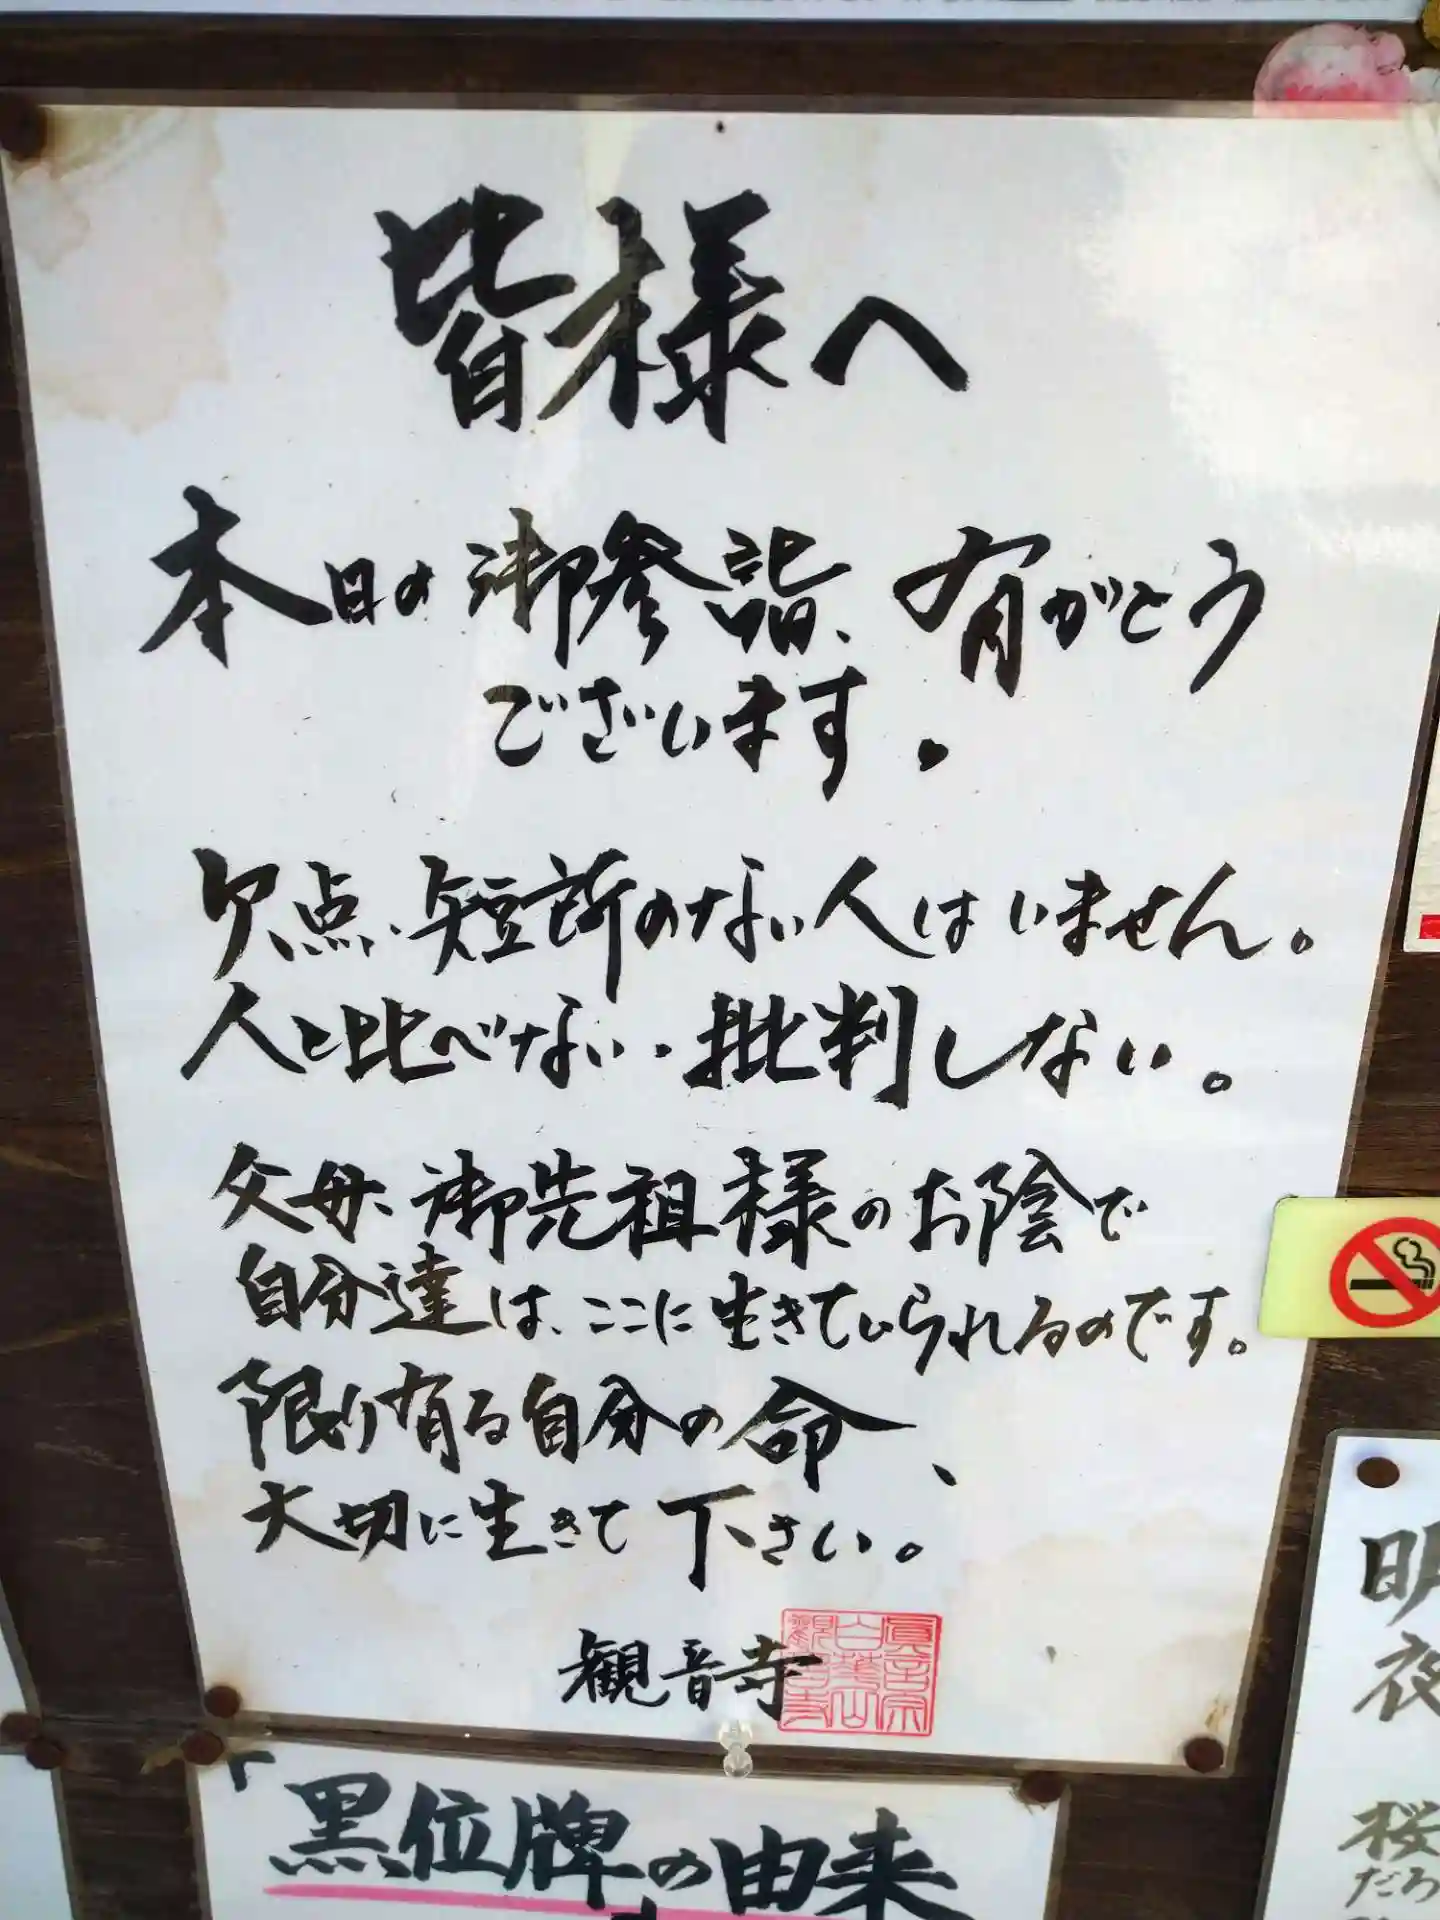 皆様へ
本日の御参詣、有がとう
ございます。
欠点・短所のない人はいません。
人と比べない・批判しない。
父母、御先祖様のお陰で
自分達は、ここに生きていられるのです。
限り有る自分の命、
大切に生きて下さい。
観音寺
眞言宗
白華山
観音寺
黒位牌の由来
明
夜
桜
だろ